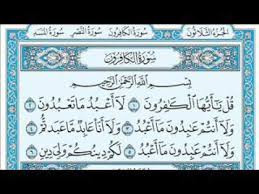 الجُزْءُ الثَّلَاثُونَ سُورَةُ الكَافِرُونَ سُورَةُ النَّصْرِ سُورَةُ المَسَدِ
سُورَةُ الكَافِرُونَ
بِسْمِ ٱللَّهِ ٱلرَّحْمَٰنِ ٱلرَّحِيمِ
قُلْ يَٰٓأَيُّهَا ٱلْكَٰفِرُونَ ١ لَآ أَعْبُدُ مَا تَعْبُدُونَ ٢
وَلَآ أَنتُمْ عَٰبِدُونَ مَآ أَعْبُدُ ٣ وَلَآ أَنَا۠ عَابِدٌ مَّا عَبَدتُّمْ ٤
وَلَآ أَنتُمْ عَٰبِدُونَ مَآ أَعْبُدُ ٥ لَكُمْ دِينُكُمْ وَلِيَ دِينِ ٦